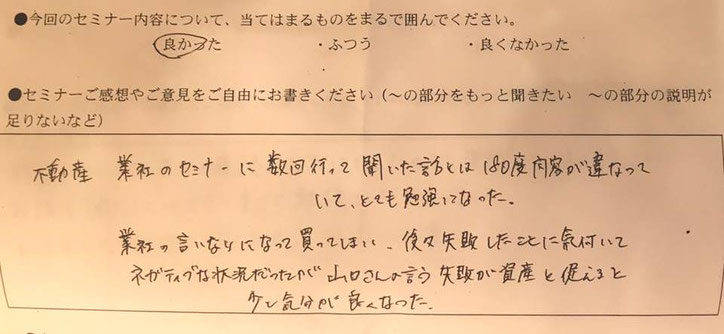 ●今回のセミナー内容について、当てはまるものをまるで囲んでください。
良かった ・ふつう ・良くなかった
●セミナーご感想やご意見をご自由にお書きください（～の部分をもっと聞きたい　～の部分の説明が
足りないなど）
不動産 業社のセミナーに数回行って聞いた話とは180度内容が違なって
いて、とても勉強になった。
業社の言いなりになって買ってしまい、後々失敗したことに気付いて
ネガティブな状況だったが山口さんの言う失敗が資産と捉えると
少し気分が良くなった。